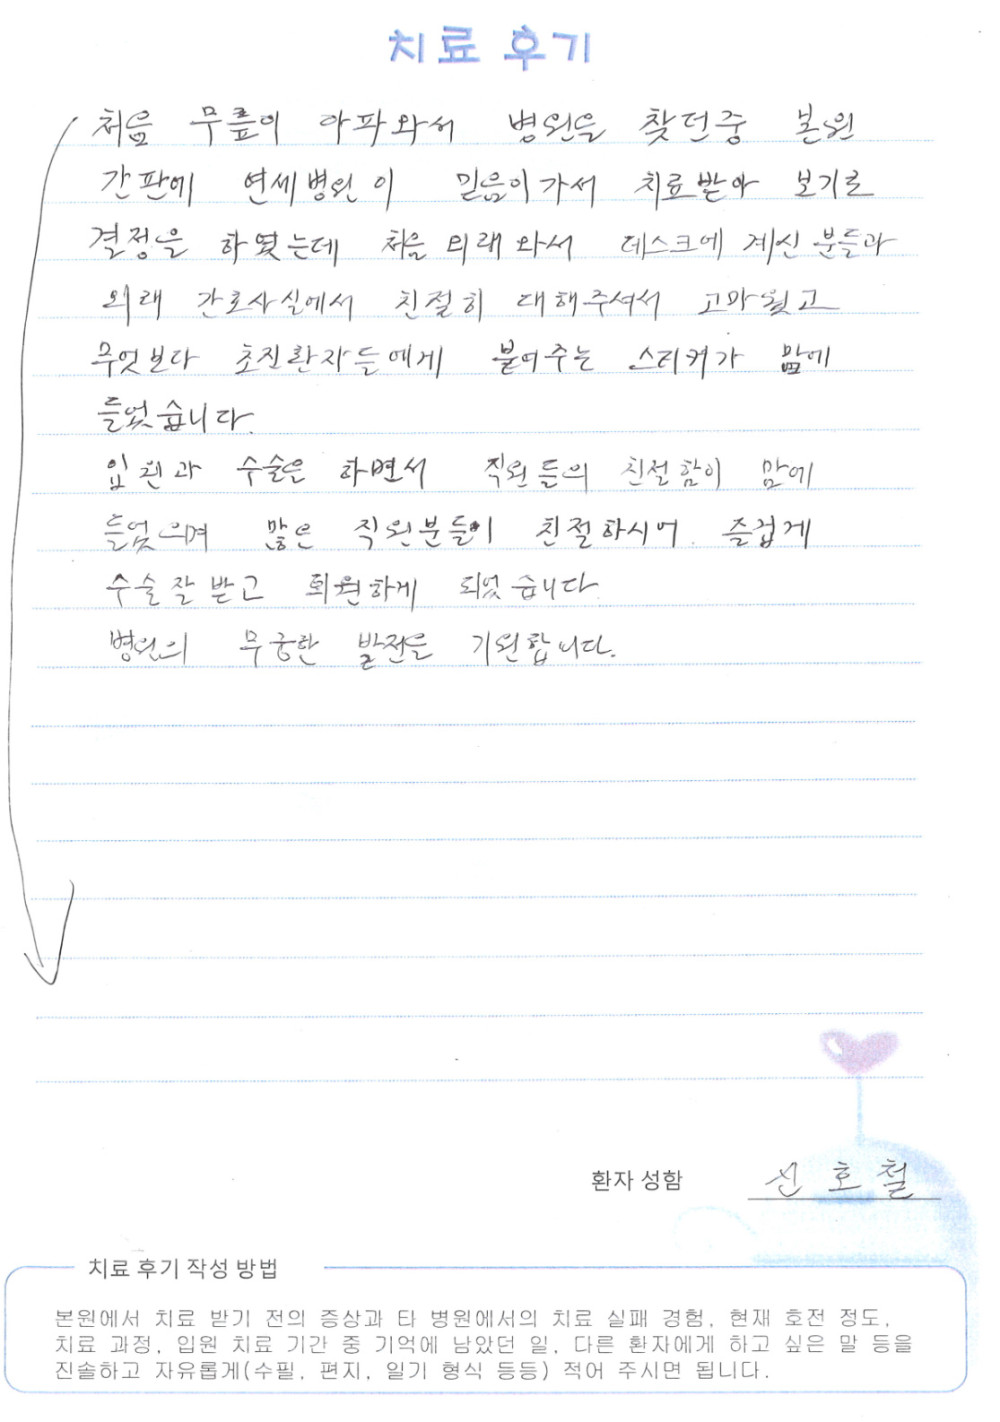 치료 후기
처음 무릎이 아파와서 병원을 찾던중 본원
간판에 연세병원이 믿음이가서 치료받아 보기로
결정을 하였는데 처음 외래 와서 데스크에 계신 분들과
외래 간호사실에서 친절히 대해주셔서 고마웠고
무엇보다 초진환자들에게 붙여주는 스티커가 맘에
들었습니다.
입원과 수술은 하면서 직원들의 친절함이 맘에
들었으며 많은 직원분들이 친절하시어 즐겁게
수술 잘 받고 퇴원하게 되었습니다.
병원의 무궁한 발전을 기원합니다.
환자 성함 신호철
치료 후기 작성 방법
본원에서 치료 받기 전의 증상과 타 병원에서의 치료 실패 경험, 현재 호전 정도,
치료 과정, 입원 치료 기간 중 기억에 남았던 일, 다른 환자에게 하고 싶은 말 등을
진솔하고 자유롭게(수필, 편지, 일기 형식 등등) 적어 주시면 됩니다.